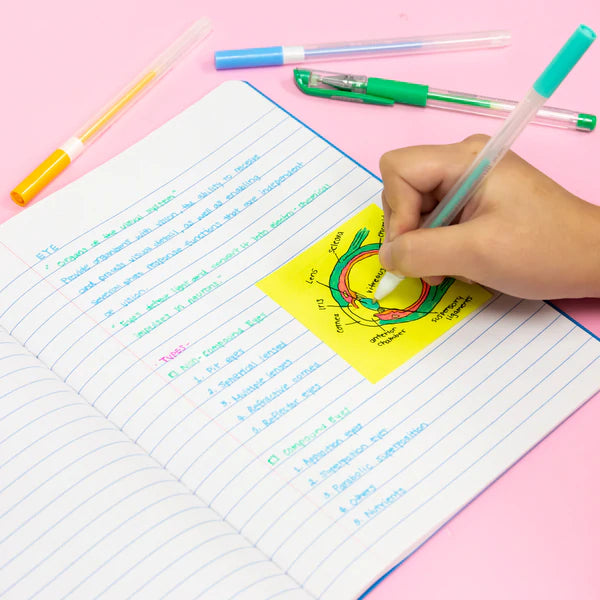 EYE
" Organs of the visual system "
Provide organisms with vision, the ability to receive
and process visual detail, as well as enabling
several photo response functions that are independent
of vision.
" Eyes detect light and convert it into electro-chemical
impulses in neurons. "
· TYPES ·
Non-Compound Eyes
1. Pit eyes
2. Spherical lensed
3. Multiple lenses
4. Refractive cornea
5. Reflector eyes
Compound Eyes
1. Apposition eyes
2. Superposition eyes
3. Parabolic superposition
4. Others
5. Nutrients
Sclera
Lens
Iris
Cornea
anterior
chamber
suspensory
ligaments